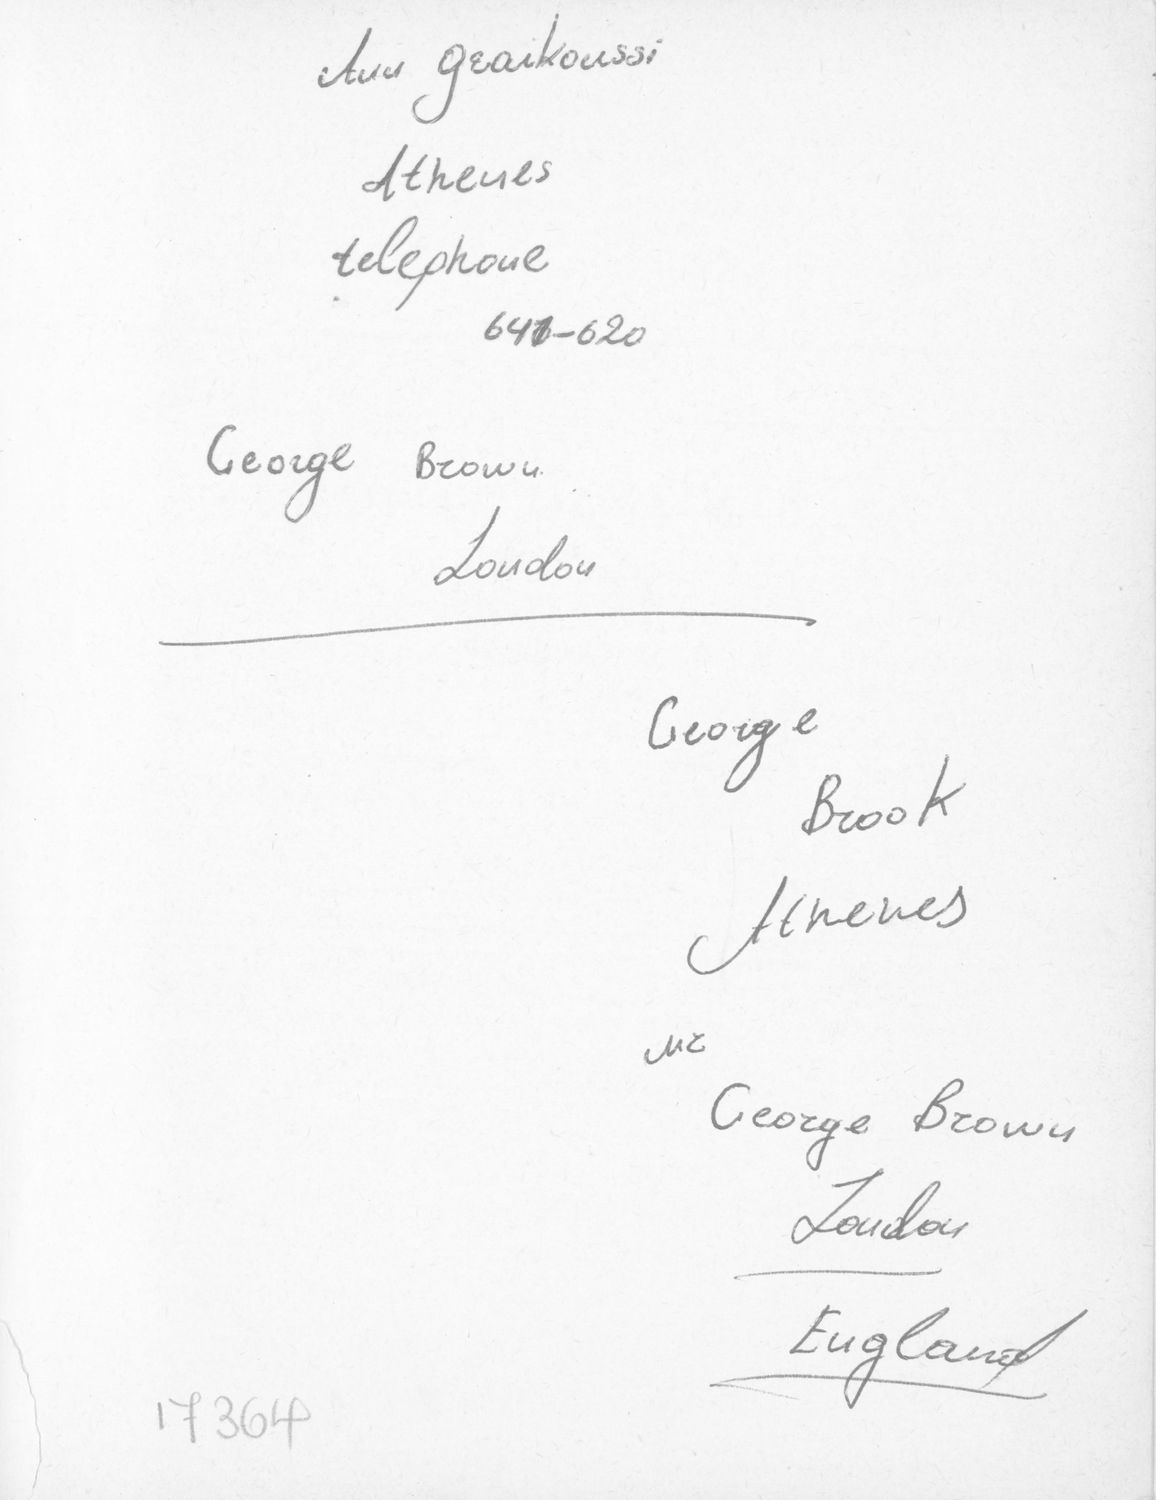 Ann Graikoussi
Athenes
telephone
641-620
George Brown
London
George
Brook
Athenes
Mr
George Brown
London
England
17364